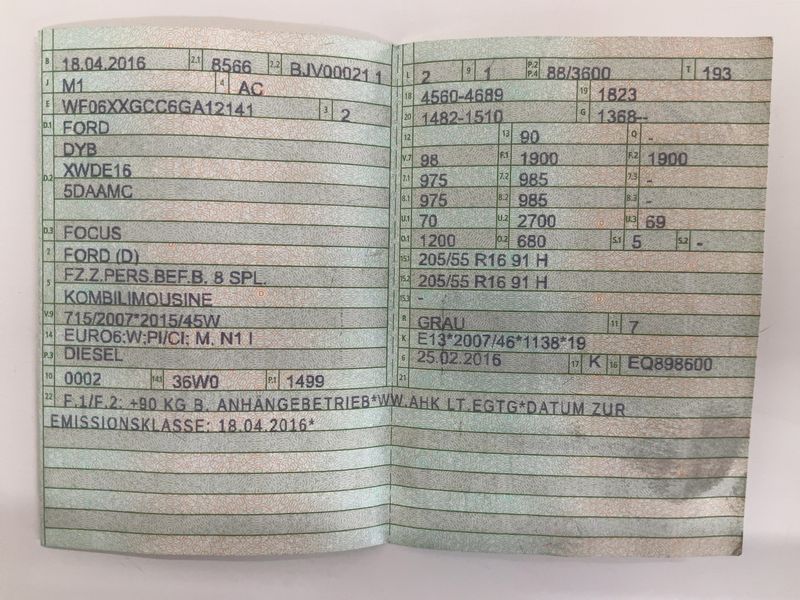 B 18.04.2016 2.1 8566 2.2 BJV00021 1
J M1 4 AC
E WF06XXGCC6GA12141 3 2
D.1 FORD
DYB
D.2 XWDE16
5DAAMC
D.3 FOCUS
2 FORD (D)
5 FZ.Z.PERS.BEF.B. 8 SPL.
KOMBILIMOUSINE
V.9 715/2007*2015/45W
14 EURO6;W;PI/CI; M, N1 I
P.3 DIESEL
10 0002 14.1 36W0 P.1 1499
L 2 9 1 P.2 P.4 88/3600 T 193
18 4560-4689 19 1823
20 1482-1510 G 1368--
12 13 90 Q -
V.7 98 F.1 1900 F.2 1900
7.1 975 7.2 985 7.3 -
8.1 975 8.2 985 8.3 -
U.1 70 U.2 2700 U.3 69
O.1 1200 O.2 680 S.1 5 S.2 -
15.1 205/55 R16 91 H
15.2 205/55 R16 91 H
15.3 -
R GRAU 11 7
K E13*2007/46*1138*19
6 25.02.2016 17 K 16 EQ898600
21
22 F.1/F.2: +90 KG B. ANHÄNGEBETRIEB*WW.AHK LT.EGTG*DATUM ZUR
EMISSIONSKLASSE: 18.04.2016*